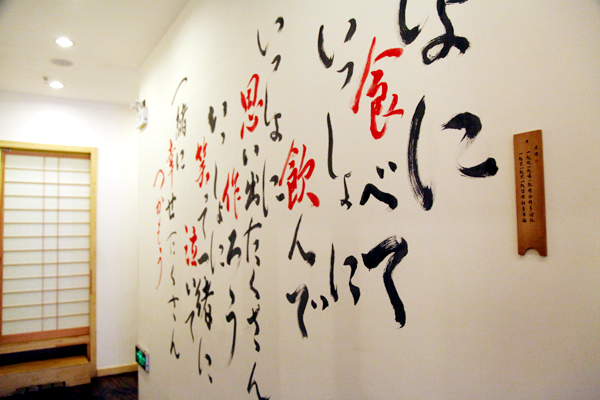 しょに
食べて
いっしょに
飲んで
いっしょに
思い出たくさん
作ろう
いっしょに
笑って一緒に
泣いて
一緒に
幸せたくさん
つかもう